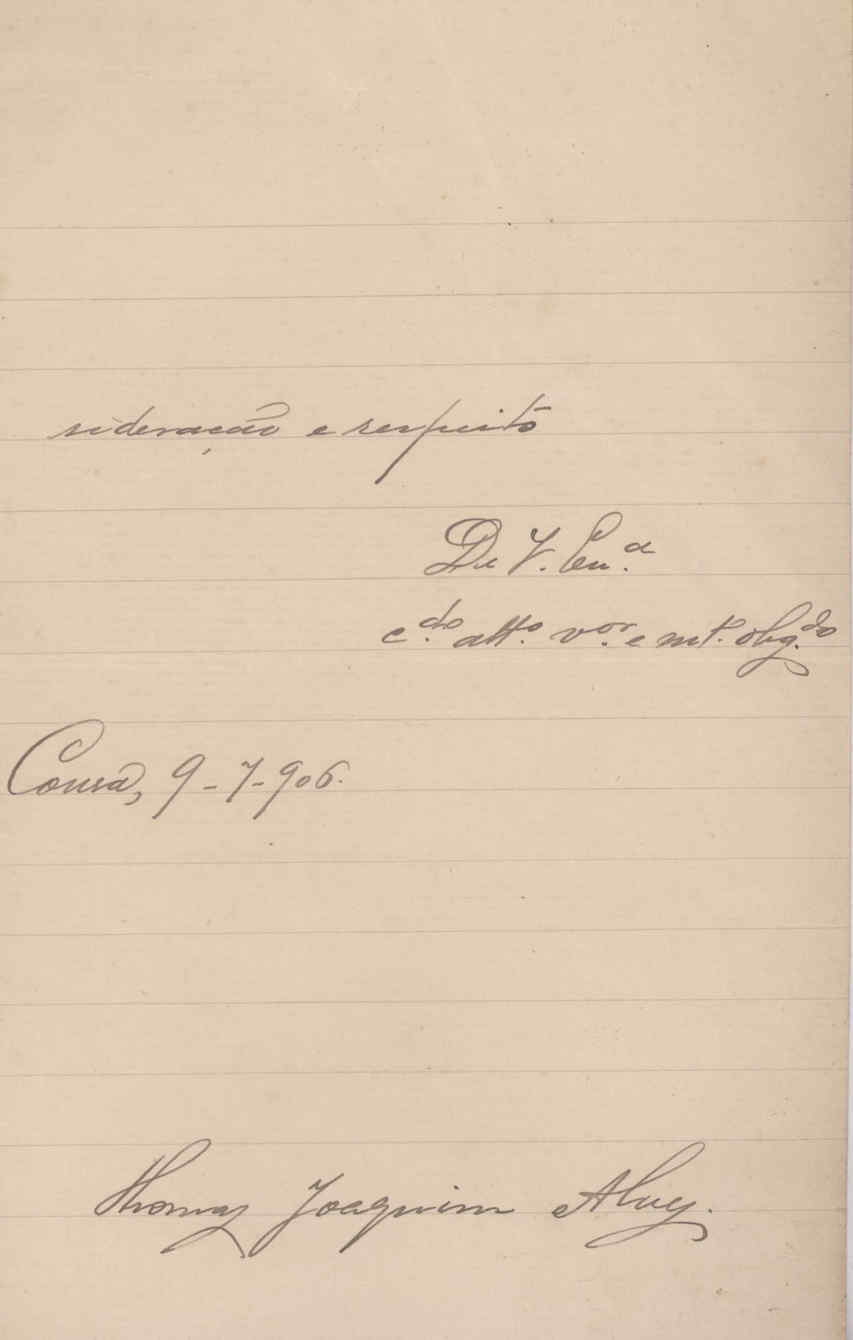 sideração e respeito
De V. Exᵃ.
cᵈᵒ. attᵒ. vᵒʳ. e mᵗ. obgᵈᵒ.
9-7-906.
Thomaz Joaquim Alves.